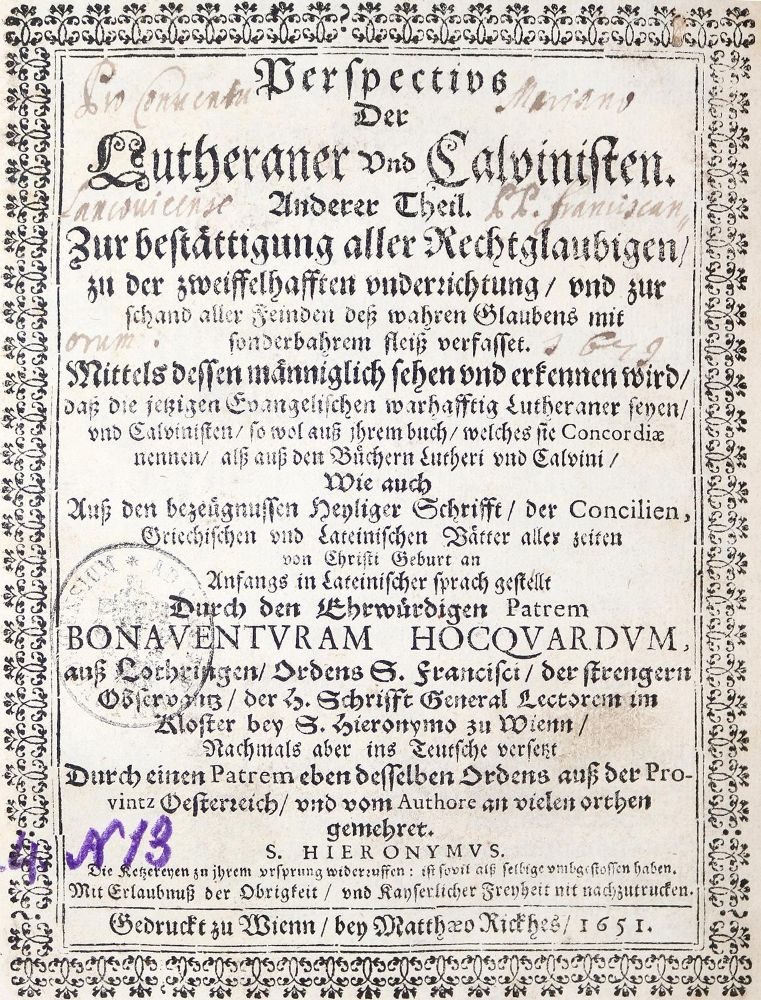 Perspectivs
Pro Conventu Mariano
Der
Lutheraner vnd Calvinisten.
Lancovicense PP. Franciscan„
Anderer Theil.
Zur bestättigung aller Rechtglaubigen/
zu der zweiffelhafften vnderrichtung/ vnd zur
schand aller Feinden deß wahren Glaubens mit
orum. 1679
sonderbahrem fleiß verfasset.
Mittels dessen männiglich sehen vnd erkennen wird/
daß die jetzigen Evangelischen warhafftig Lutheraner seyen/
vnd Calvinisten/ so wol auß jhrem buch/ welches sie Concordiæ
nennen/ alß auß den Büchern Lutheri vnd Calvini/
Wie auch
Auß den bezeügnussen Heyliger Schrifft/ der Concilien,
Griechischen vnd Lateinischen Vätter aller zeiten
von Christi Geburt an
Anfangs in Lateinischer sprach gestellt
Durch den Ehrwürdigen Patrem
BONAVENTVRAM HOCQVARDVM,
auß Lothringen/ Ordens S. Francisci/ der strengern
Observantz/ der H. Schrifft General Lectorem im
Kloster bey S. Hieronymo zu Wienn/
Nachmals aber ins Teutsche versetzt
Durch einen Patrem eben desselben Ordens auß der Pro-
vintz Oesterreich/ vnd vom Authore an vielen orthen
gemehret.
N 13
S. HIERONYMVS.
Die Ketzereyen zu jhrem vrsprung widerruffen: ist sovil alß selbige vmbgestossen haben.
Mit Erlaubnuß der Obrigkeit/ vnd Kayserlicher Freyheit nit nachzutrucken.
Gedruckt zu Wienn/ bey Matthæo Rickhes/ 1651.